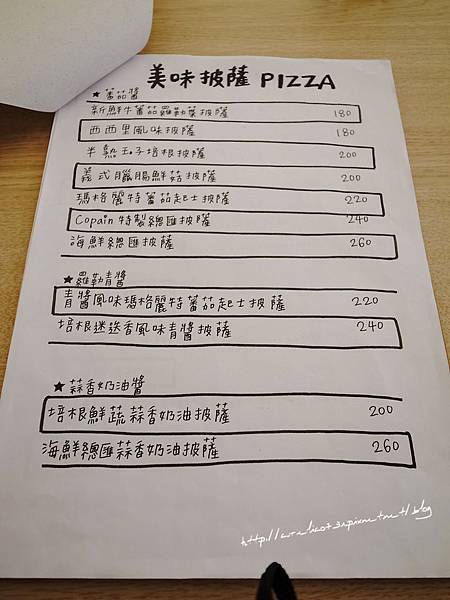 美味披薩 PIZZA
★蕃茄醬
新鮮牛蕃茄羅勒葉披薩 180
西西里風味披薩 180
半熟玉子培根披薩 200
義式臘腸鮮菇披薩 200
瑪格麗特蕃茄起士披薩 220
Copain特製總匯披薩 240
海鮮總匯披薩 260
★羅勒青醬
青醬風味瑪格麗特蕃茄起士披薩 220
培根迷迭香風味青醬披薩 240
★蒜香奶油醬
培根鮮蔬蒜香奶油披薩 200
海鮮總匯蒜香奶油披薩 260